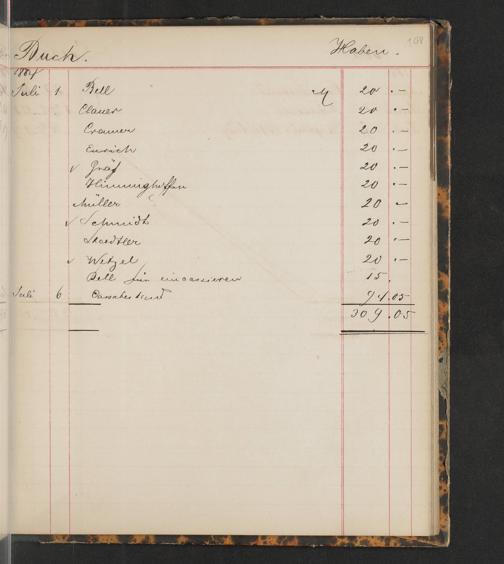 Buch. Haben. 108
1884
Juli 1 Bell M 20 . —
Clauer 20 . —
Cramer 20 . —
Emrich 20 . —
✓ Gräf 20 . —
Himminghoffen 20 . —
Müller 20 —
✓ Schmidt 20 . —
Staedtler 20 . —
✓ Wetzel 20 . —
Bell für eincassieren 15 .
Juli 6 Cassabestand 94.05
309.05